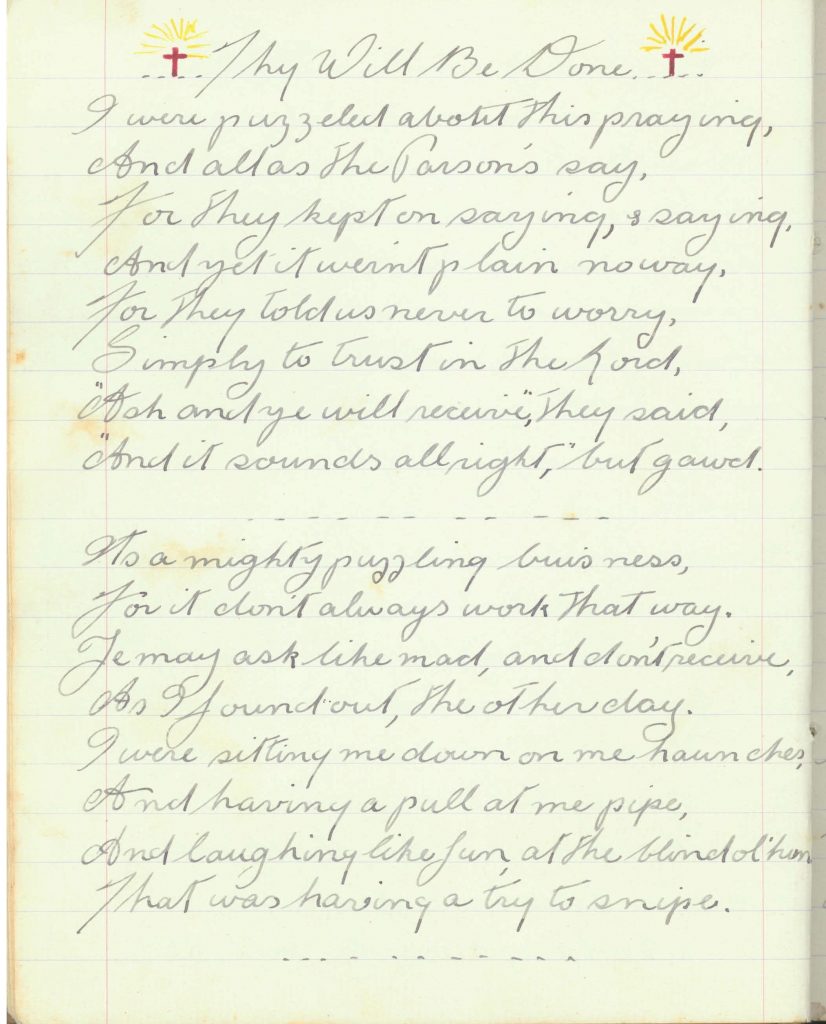 .....Thy Will Be Done.....
I were puzzeled about this praying,
And all as the Parson's say,
For they kept on saying, & saying,
And yet it wern't plain no way,
For they told us never to worry,
Simply to trust in the Lord,
"Ask and ye will receive", they said,
"And it sounds all right," but gawd.
Its a mighty puzzling buisness,
For it don't always work that way.
Ye may ask like mad, and don't receive,
As I found out, the other day.
I were sitting me down on me haunches,
And having a pull at me pipe,
And laughing like fun, at the blind ol' hun
That was having a try to snipe.